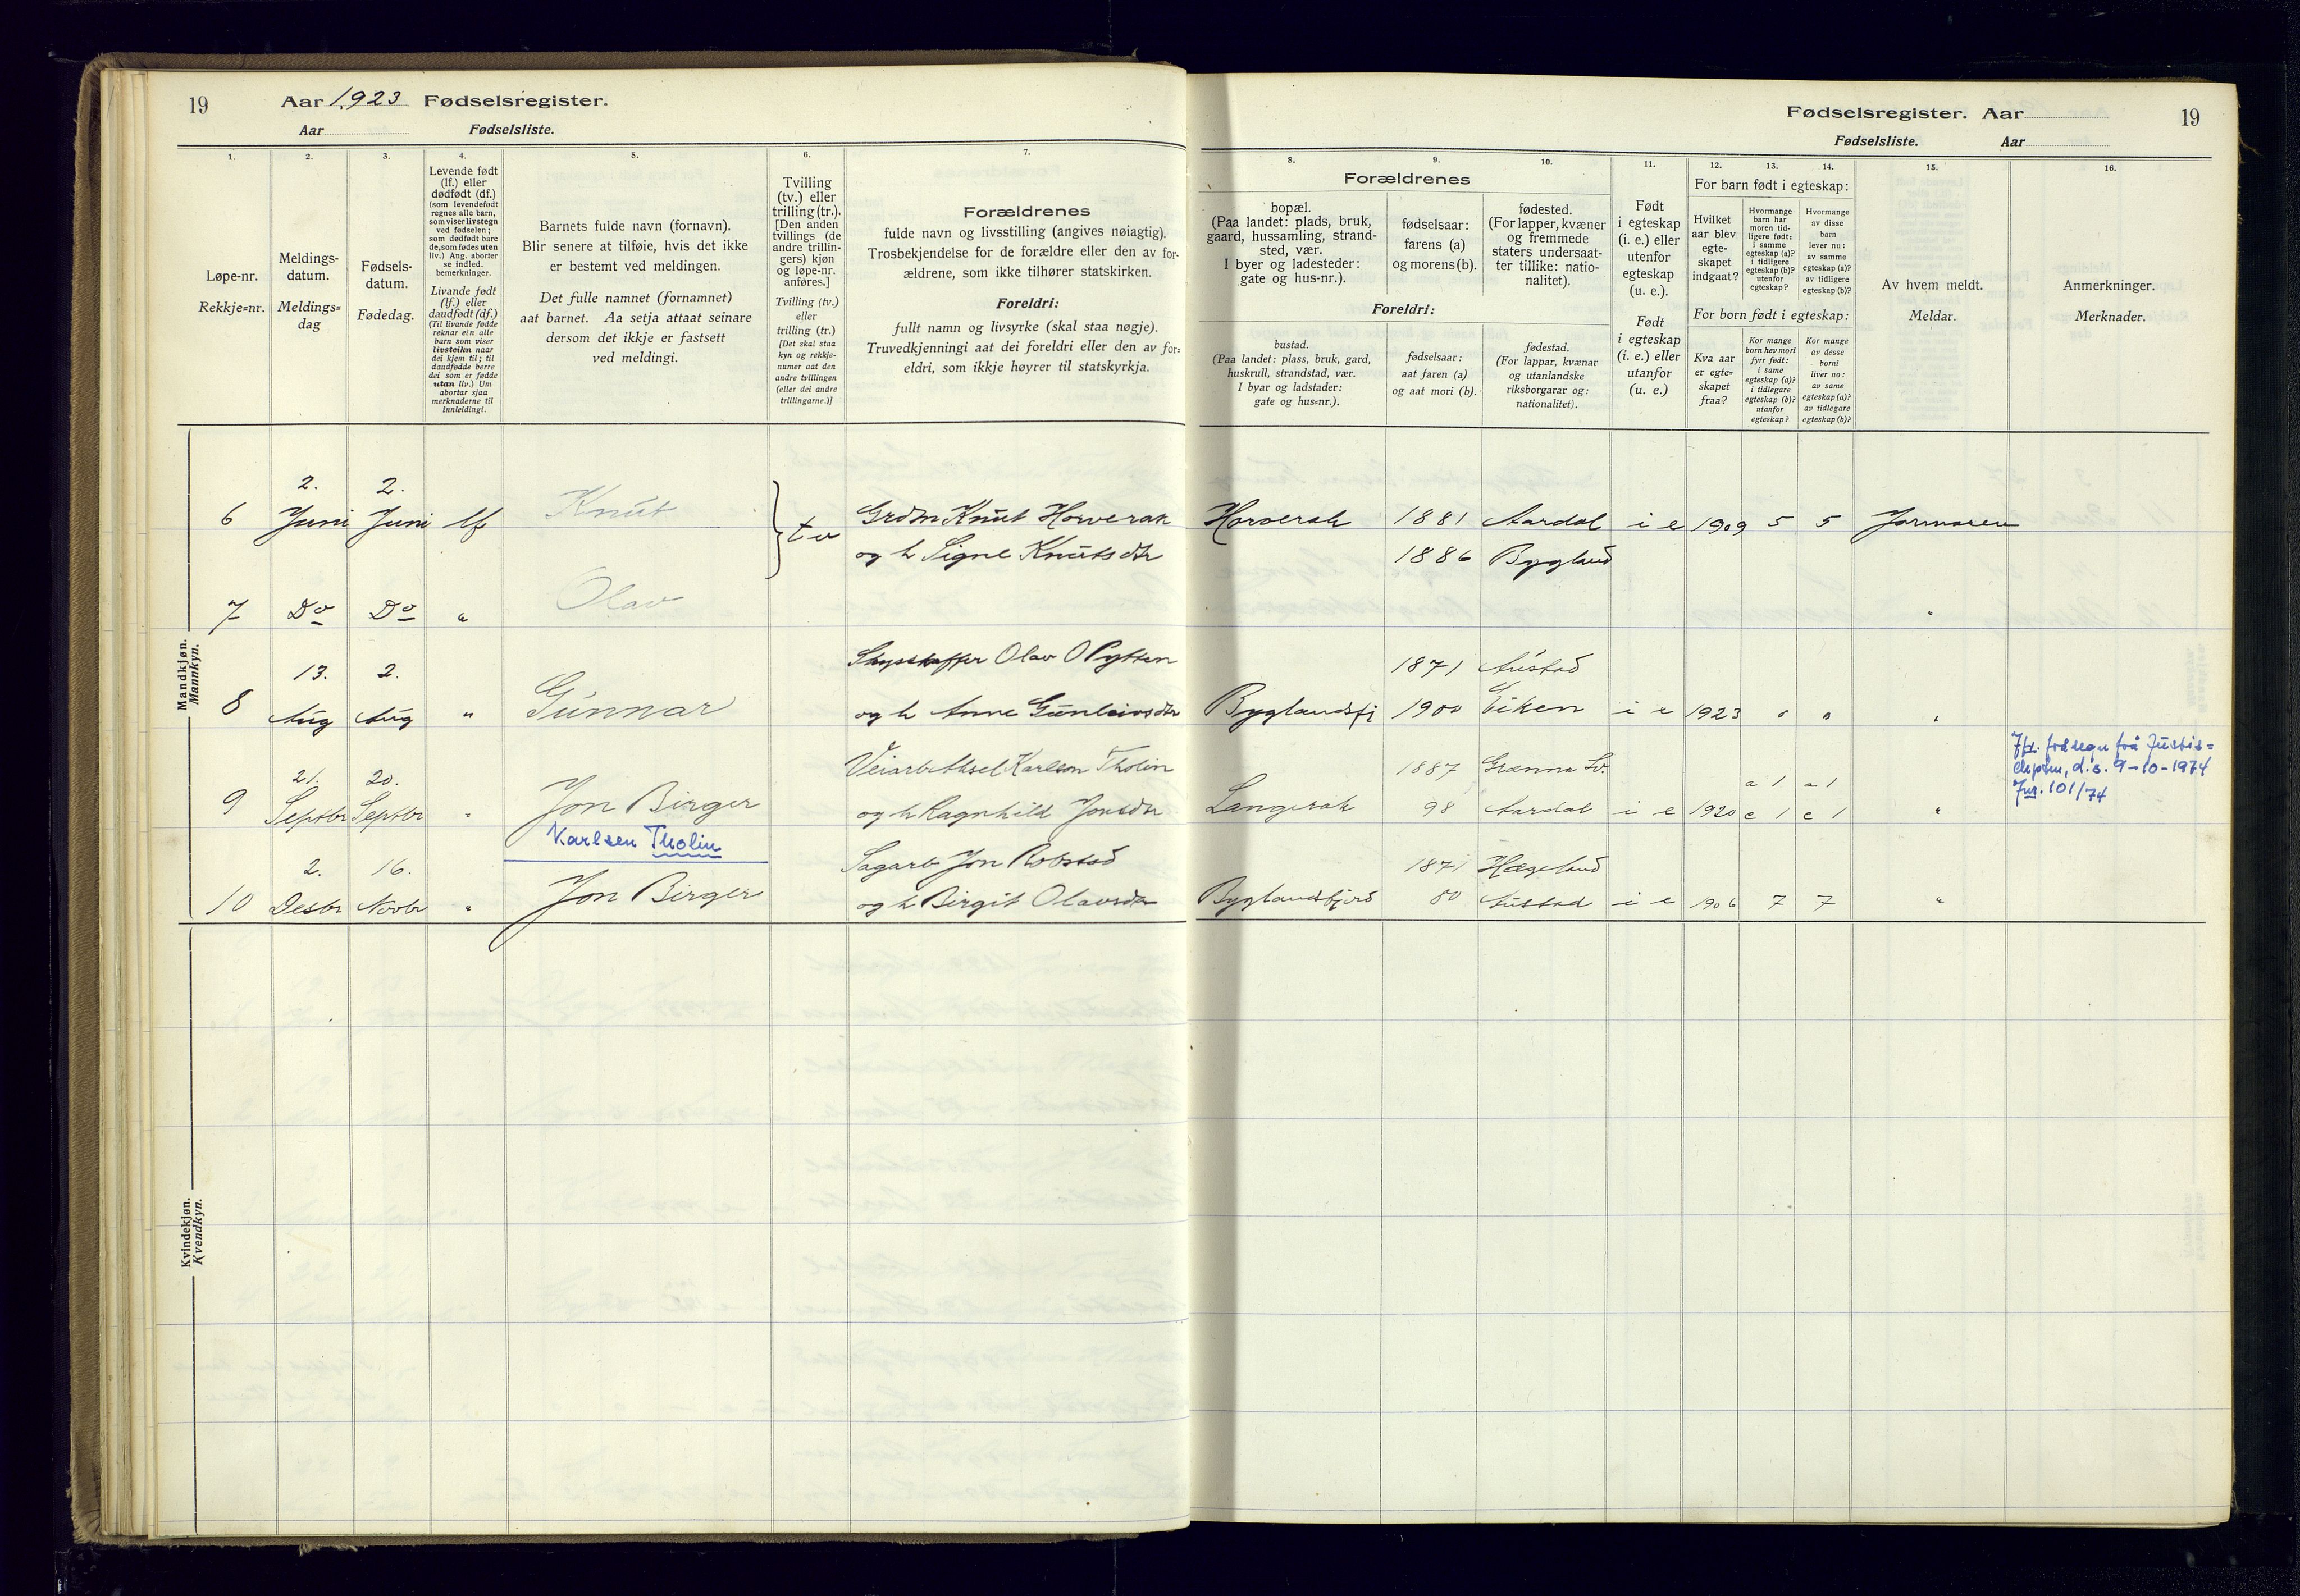 19
Aar 1923 Fødselsregister.
Aar Fødselsliste.
1.
2.
3.
4.
5.
6.
7.
Løpe-nr.
Rekkje=nr.
Meldings-
datum.
Meldings=
dag
Fødsels-
datum.
Fødedag.
Levende født
(lf.) eller
dødfødt (df.)
(som levendefødt
regnes alle barn,
som viser livstegn
ved fødselen;
som dødfødt bare
de, som fødes uten
liv.) Ang. aborter
se indled.
bemerkninger.
Livande født
(lf.) eller
daudfødt (df.)
(Til livande fødde
reknar ein alle
barn som viser
livsteikn naar
dei kjem til; til
daudfødde berre
dei som er fødde
utan liv.) Um
abortar sjaa
merknaderne til
innleidingi.
Barnets fulde navn (fornavn).
Blir senere at tilføie, hvis det ikke
er bestemt ved meldingen.
Det fulle namnet (fornamnet)
aat barnet. Aa setja attaat seinare
dersom det ikkje er fastsett
ved meldingi.
Tvilling
(tv.) eller
trilling (tr.).
[Den anden
tvillings (de
andre trillin-
gers) kjøn
og løpe-nr.
anføres.]
Tvilling (tv.)
eller
trilling (tr.)
[Det skal staa
kyn og rekkje-
numer aat den
andre tvillingen
(eller dei andre
trillingarne.)]
Forældrenes
fulde navn og livsstilling (angives nøiagtig).
Trosbekjendelse for de forældre eller den av for-
ældrene, som ikke tilhører statskirken.
Foreldri:
fullt namn og livsyrke (skal staa nøgje).
Truvedkjenningi aat dei foreldri eller den av for=
eldri, som ikkje høyrer til statskyrkja.
Mandkjøn.
Mannkyn.
2. 2.
6 Juni Juni lf Knut tv Grdm Knut Horverak
og h Signe Knutsdtr
7 Do Do " Olav
13. 2. Skysskaffer Olav O Pytten
8 Aug Aug " Gunnar og h Anne Gunleivsdtr
21. 20. Veiarb Aksel Karlson Tholin
9 Septbr Septbr " Jon Birger og h Ragnhild Jonsdtr
Karlsen Tholin
2. 16. Sagarb Jon Robstad
10 Desbr Novbr " Jon Birger og h Birgit Olavsdtr
Kvindekjøn.
Kvendkyn.
Fødselsregister. Aar 19
Fødselsliste. Aar
8.
9.
10.
11.
12.
13.
14.
15.
16.
Forældrenes
bopæl.
(Paa landet: plads, bruk,
gaard, hussamling, strand-
sted, vær.
I byer og ladesteder:
gate og hus-nr.).
fødselsaar:
farens (a)
og morens (b).
fødested.
(For lapper, kvæner
og fremmede
staters undersaat-
ter tillike: natio-
nalitet).
Foreldri:
bustad.
(Paa landet: plass, bruk, gard,
huskrull, strandstad, vær.
I byar og ladstader:
gate og hus=nr.).
fødselsaar:
aat faren (a)
og aat mori (b).
fødestad.
(For lappar, kvænar
og utanlandske
riksborgarar og:
nationalitet).
Født
i egteskap
(i. e.) eller
utenfor
egteskap
(u. e.).
Født
i egteskap
(i. e.) eller
utanfor
(u. e.)
For barn født i egteskap:
Hvilket
aar blev
egte-
skapet
indgaat?
Hvormange
barn har
moren tid-
ligere født:
i samme
egteskap (a)?
i tidligere
egteskap (b)?
utenfor
egteskap?
Hvormange
av disse
barn
lever nu:
av samme
egteskap (a)?
av tidligere
egteskap (b)?
For born født i egteskap:
Kva aar
er egte=
skapet
fraa?
Kor mange
born hev mori
fyrr født:
i same
egteskap (a)?
i tidlegare
egteskap (b)?
utanfor
egteskap?
Kor mange
av desse
borni
liver no:
av same
egteskap (a)?
av tidlegare
egteskap (b)?
Av hvem meldt.
Meldar.
Anmerkninger.
Merknader.
Horverak 1881 Aardal i e 1909 5 5 Jormoren
1886 Bygland
"
1871 Austad
Byglandsfj 1900 Eiken i e 1923 " " "
1887 Grænna Sv. a 1 a 1
Langerak 98 Aardal i e 1920 e 1 e 1 "
1871 Hægeland
Byglandsfjord 80 Austad i e 1906 7 7 "
frå Justis=
d.s. 9-10-1974
Jnr. 101/74